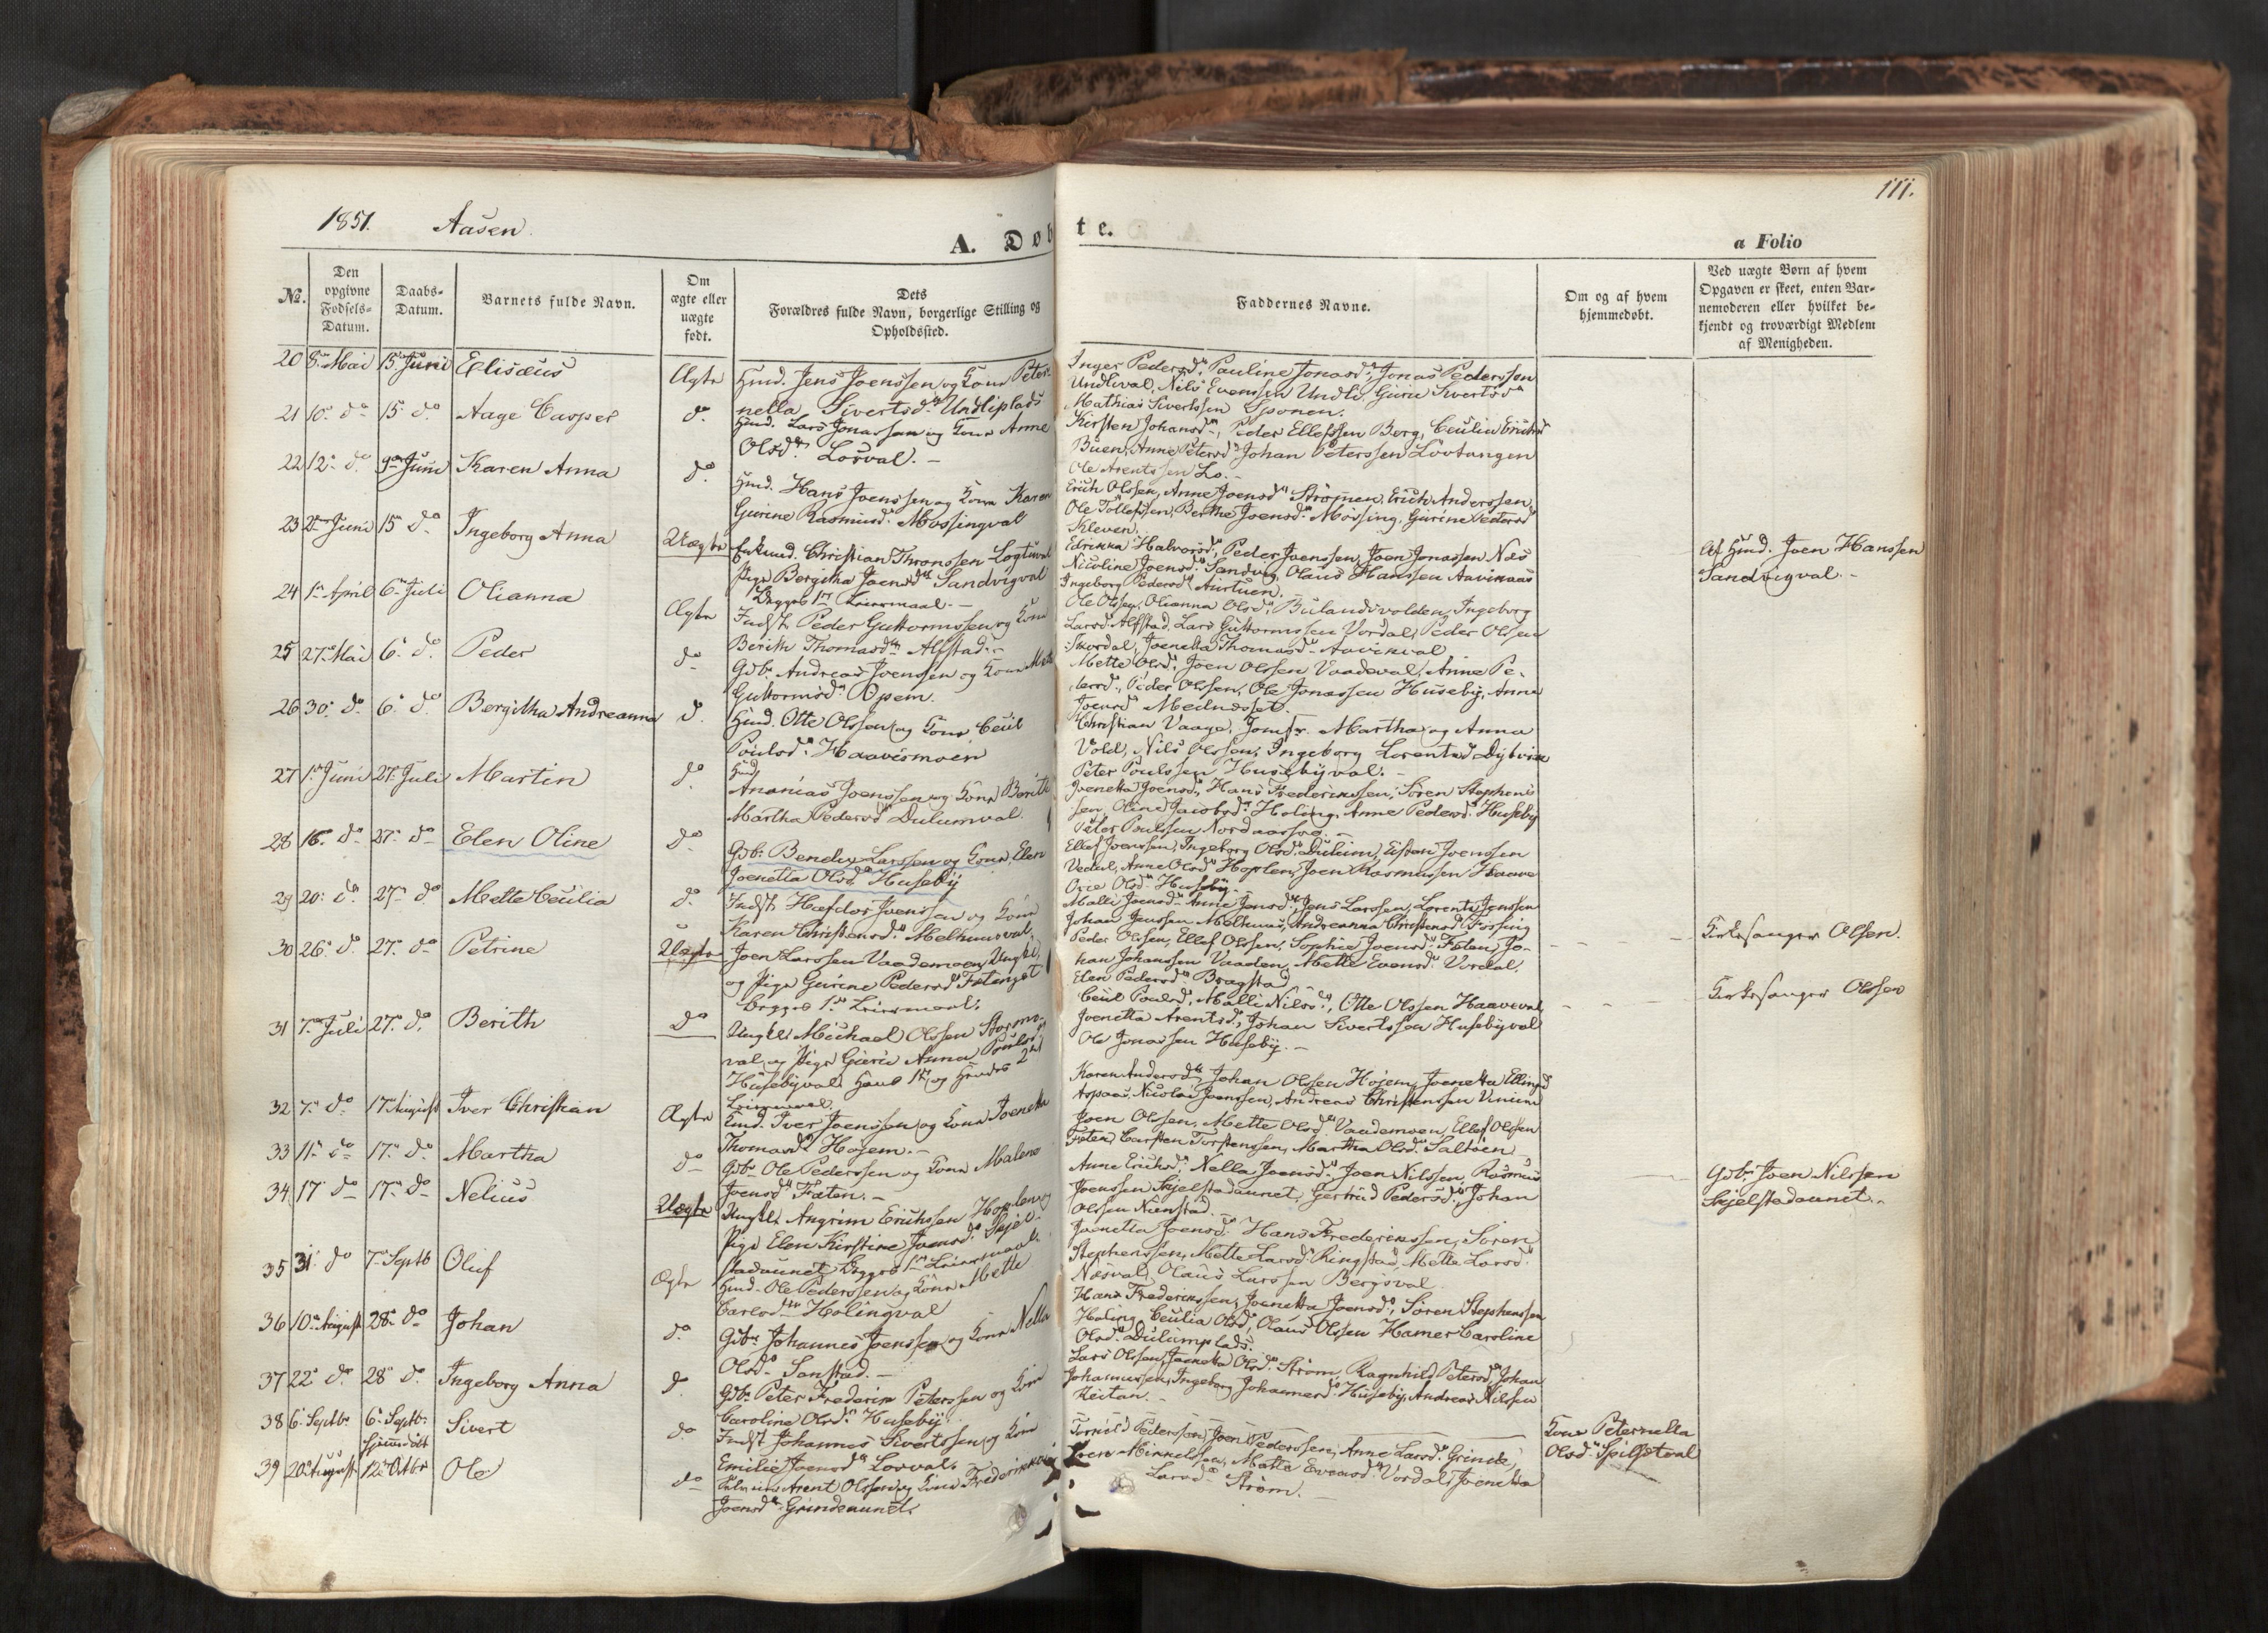 1851. Aasen.
111.
A. Døbte.
a Folio
No.
Den opgivne Fødsels-Datum.
Daabs-Datum.
Barnets fulde Navn.
Om ægte eller uægte født.
Dets Forældres fulde Navn, borgerlige Stilling og Opholdssted.
Faddernes Navne.
Om og af hvem hjemmedøbt.
Ved uægte Børn af hvem Opgaven er skeet, enten Barnemoderen eller hvilket bekjendt og troværdigt Medlem af Menigheden.
20 8 Mai 15 Juni Elisæus Ægte
Huusmd. Jens Joenssen og Kone Peter-
nella Sivertsdr. Undliplads
Inger Pedersdr, Pauline Jonasdr, Jonas Pederssen
Undlival, Nils Evenssen Undli, Guru Sivertsdr
Mathias Sivertssen Sponen.
21 10 do 15 do Aage Casper do
Huusmd. Lars Jonassen og Kone Anne
Olsdr. Losval.
Kirsten Johansdr, Peder Ellefssen Berg, Ceulie Erichsdr
Buen, Anne Petersdr Johan Peterssen Lovtangen
Ole Arentssen Lo.
22 12 do 9 Juni Karen Anna do
Huusmd. Hans Joenssen og Kone Karen
Gurine Rasmusdr. Mossingval
Erich Olssen, Anne Joensdr Strømen, Erich Anderssen,
Ole Tollefssen, Berthe Joensdr. Møssing, Gurine Pedersdr
Kleven.
23 2 Juni 15 do Ingeborg Anna Uægte
Enkemd. Christian Thronssen Logtuval
Pige Bergitha Joensdr Sandvigval
Begges 1ste Leiermaal.
Edrikka Halvorsdr, Peder Joenssen, Joen Jonassen Næs
Nicoline Joensdr Sandvig, Olaus Hanssen Aavikaas
Ingeborg Pedersdr Aurtuen.
Af Huusmd. Joen Hanssen
Sandvigval.
24 1 April 6 Juli Olianna Ægte
Indst. Peder Guttormssen og Kone
Berith Thomasdr Alfstad.
Ole Olssen, Olianna Olsdr Bulandsvolden, Ingeborg
Larsdr Alfstad, Lars Guttormssen Vordal, Peder Olssen
Skordal, Joenetta Thomasdr Aavikval
25 27 Mai 6 do Peder do
Gdbr. Andreas Joenssen og Kone Mette
Guttormsdr. Opem.
Mette Olsdr, Joen Olssen Vaadeval, Anne Pe-
dersdr, Peder Olssen, Ole Jonassen Huseby, Anne
Joensdr Mednesset.
26 30 do 6 do Bergitha Andreanna do
Huusmd. Otte Olssen og Kone Ceul
Poulsdr. Haavismoen
Christian Vaage, Jomfr. Martha og Anna
Vold, Nils Olssen, Ingeborg Lorentsdr Dybvik
Peter Poulssen Husebyval.
27 1 Juni 27 Juli Martin do
Huusmd.
Ananias Joenssen og Kone Berith
Martha Pedersdr Dulumval.
Joenetta Joensdr, Hans Frederikssen, Søren Stephens-
sen, Oline Jacobsdr Holing, Anne Pedersdr. Huseby
Peter Poulssen Nordaasvæ.
28 16 do 27 do Elen Oline do
Gdbr. Bendix Larssen og Kone Elen
Joenetta Olsdr. Huseby
Ellef Joenssen, Ingeborg Olsdr Dulum, Eisten Joenssen
Vedul, Anne Olsdr Hoplen, Joen Rasmussen Haave
Olsdr. Huseby.
29 20 do 27 do Mette Ceulia do
Indst. Hafdor Joenssen og Kone
Karen Christensdr. Melhuusval.
Malli Joensdr Anne Jensdr, Jens Larssen, Lorents Jenssen
Johan Jenssen Melhuus, Andreanna Christensdr Fossing
30 26 do 27 do Petrine Uægte
Joen Larssen Vaademoen Ungkl,
og Pige Gurine Pedersdr Fatengst
Begges 1ste Leiermaal.
Peder Olssen, Ellef Olssen, Sophie Joensdr Fæten, Jo-
han Johanssen Vaaden, Mette Evensdr. Vordal.
Elen Pedersdr Bragstad
Kirkesanger Olssen.
31 7 Juli 27 do Berith Do
Ungkl. Michael Olssen Stormo-
val og Pige Gurie Anna Poulsdr
Husebyval. Hans 1ste og Hendes 2det
Leiermaal
Ceul Poulsdr, Malli Nilsdr, Otte Olssen Haaveval,
Joenetta Arentsdr, Johan Sivertssen Husebyval
Ole Jonassen Huseby.
Kirkesanger Olssen
32 7 do 17 August Iver Christian Ægte
Huusmd. Iver Joenssen og Kone Joenetta
Thomasdr Hojem.
Karen Andersdr, Johan Olssen Hojem, Joenetta Ellingsdr
Aspaas, Nicolai Joenssen, Andreas Christenssen Vinum
33 11 do 17 do Martha do
Gdbr. Ole Pederssen og Kone Malene
Joensdr Fæten.
Joen Olssen, Mette Olsdr. Vaademoen, Ellef Olssen
Fæten, Carsten Torstenssen, Martha Olsdr. Saltøen
34 17 do 17 do Nelius Uægte
Ungkl. Angrim Erichssen Hoplen og
Pige Elen Kirstine Joensdr. Skjel-
stadaunet Begges 1ste Leiermaal.
Anne Erichsdr, Nella Joensdr Joen Nilssen, Rasmus
Joenssen Skjelstadaunet, Gertrud Pedersdr, Johan
Olssen Nienstad.
Gdbr. Joen Nilssen
Skjelstadaunet.
35 31 do 7 Septb Oluf Ægte
Huusmd. Ole Pederssen og Kone Mette
Carlsdr Holingval
Joenetta Joensdr. Hans Frederikssen, Søren
Stephenssen, Mette Larsdr Ringstad, Mette Larsdr.
Næsval, Olaus Larssen Bergsval
36 10 August 28 do Johan do
Gdbr. Johannes Joenssen og Kone Nella
Olsdr. Sanstad.
Hans Frederikssen, Joenetta Joensdr, Søren Stephenssen
Holing, Ceulia Olsdr, Olaus Olssen Hamer Caroline
Olsdr. Dulumplads.
37 22 do 28 do Ingeborg Anna do
Gdbr. Peter Frederik Peterssen og Kone
Caroline Olsdr. Huseby
Lars Olssen, Joenetta Olsdr. Strøm, Ragnhild Petersdr Johan
Johannessen, Ingeborg Johannesdr Huseby, Andreas Nilssen
Reitan.
38 6 Septbr 6 Septbr. Hjemmedøbt Sivert do
Indst. Johannes Sivertssen og Kone
Emilie Joensdr Losval.
Kone Peternella
Olsdr. Spilsetval
39 20 August 12 Octbr Ole do
Arent Olssen og Kone Frederikke
Joensdr Grindeaunet.
Tornild Pederssen, Joen Pederssen, Anne Larsdr. Grinde,
Mikkelssen, Mette Evensdr. Vordal, Joenetta
Larsdr Strøm.